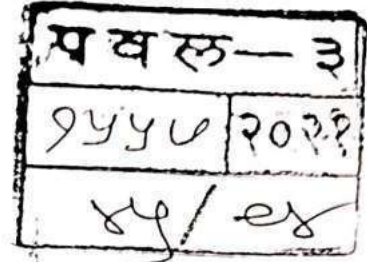 प व ल — ३
१५५७ २०२२
४५ / ९४